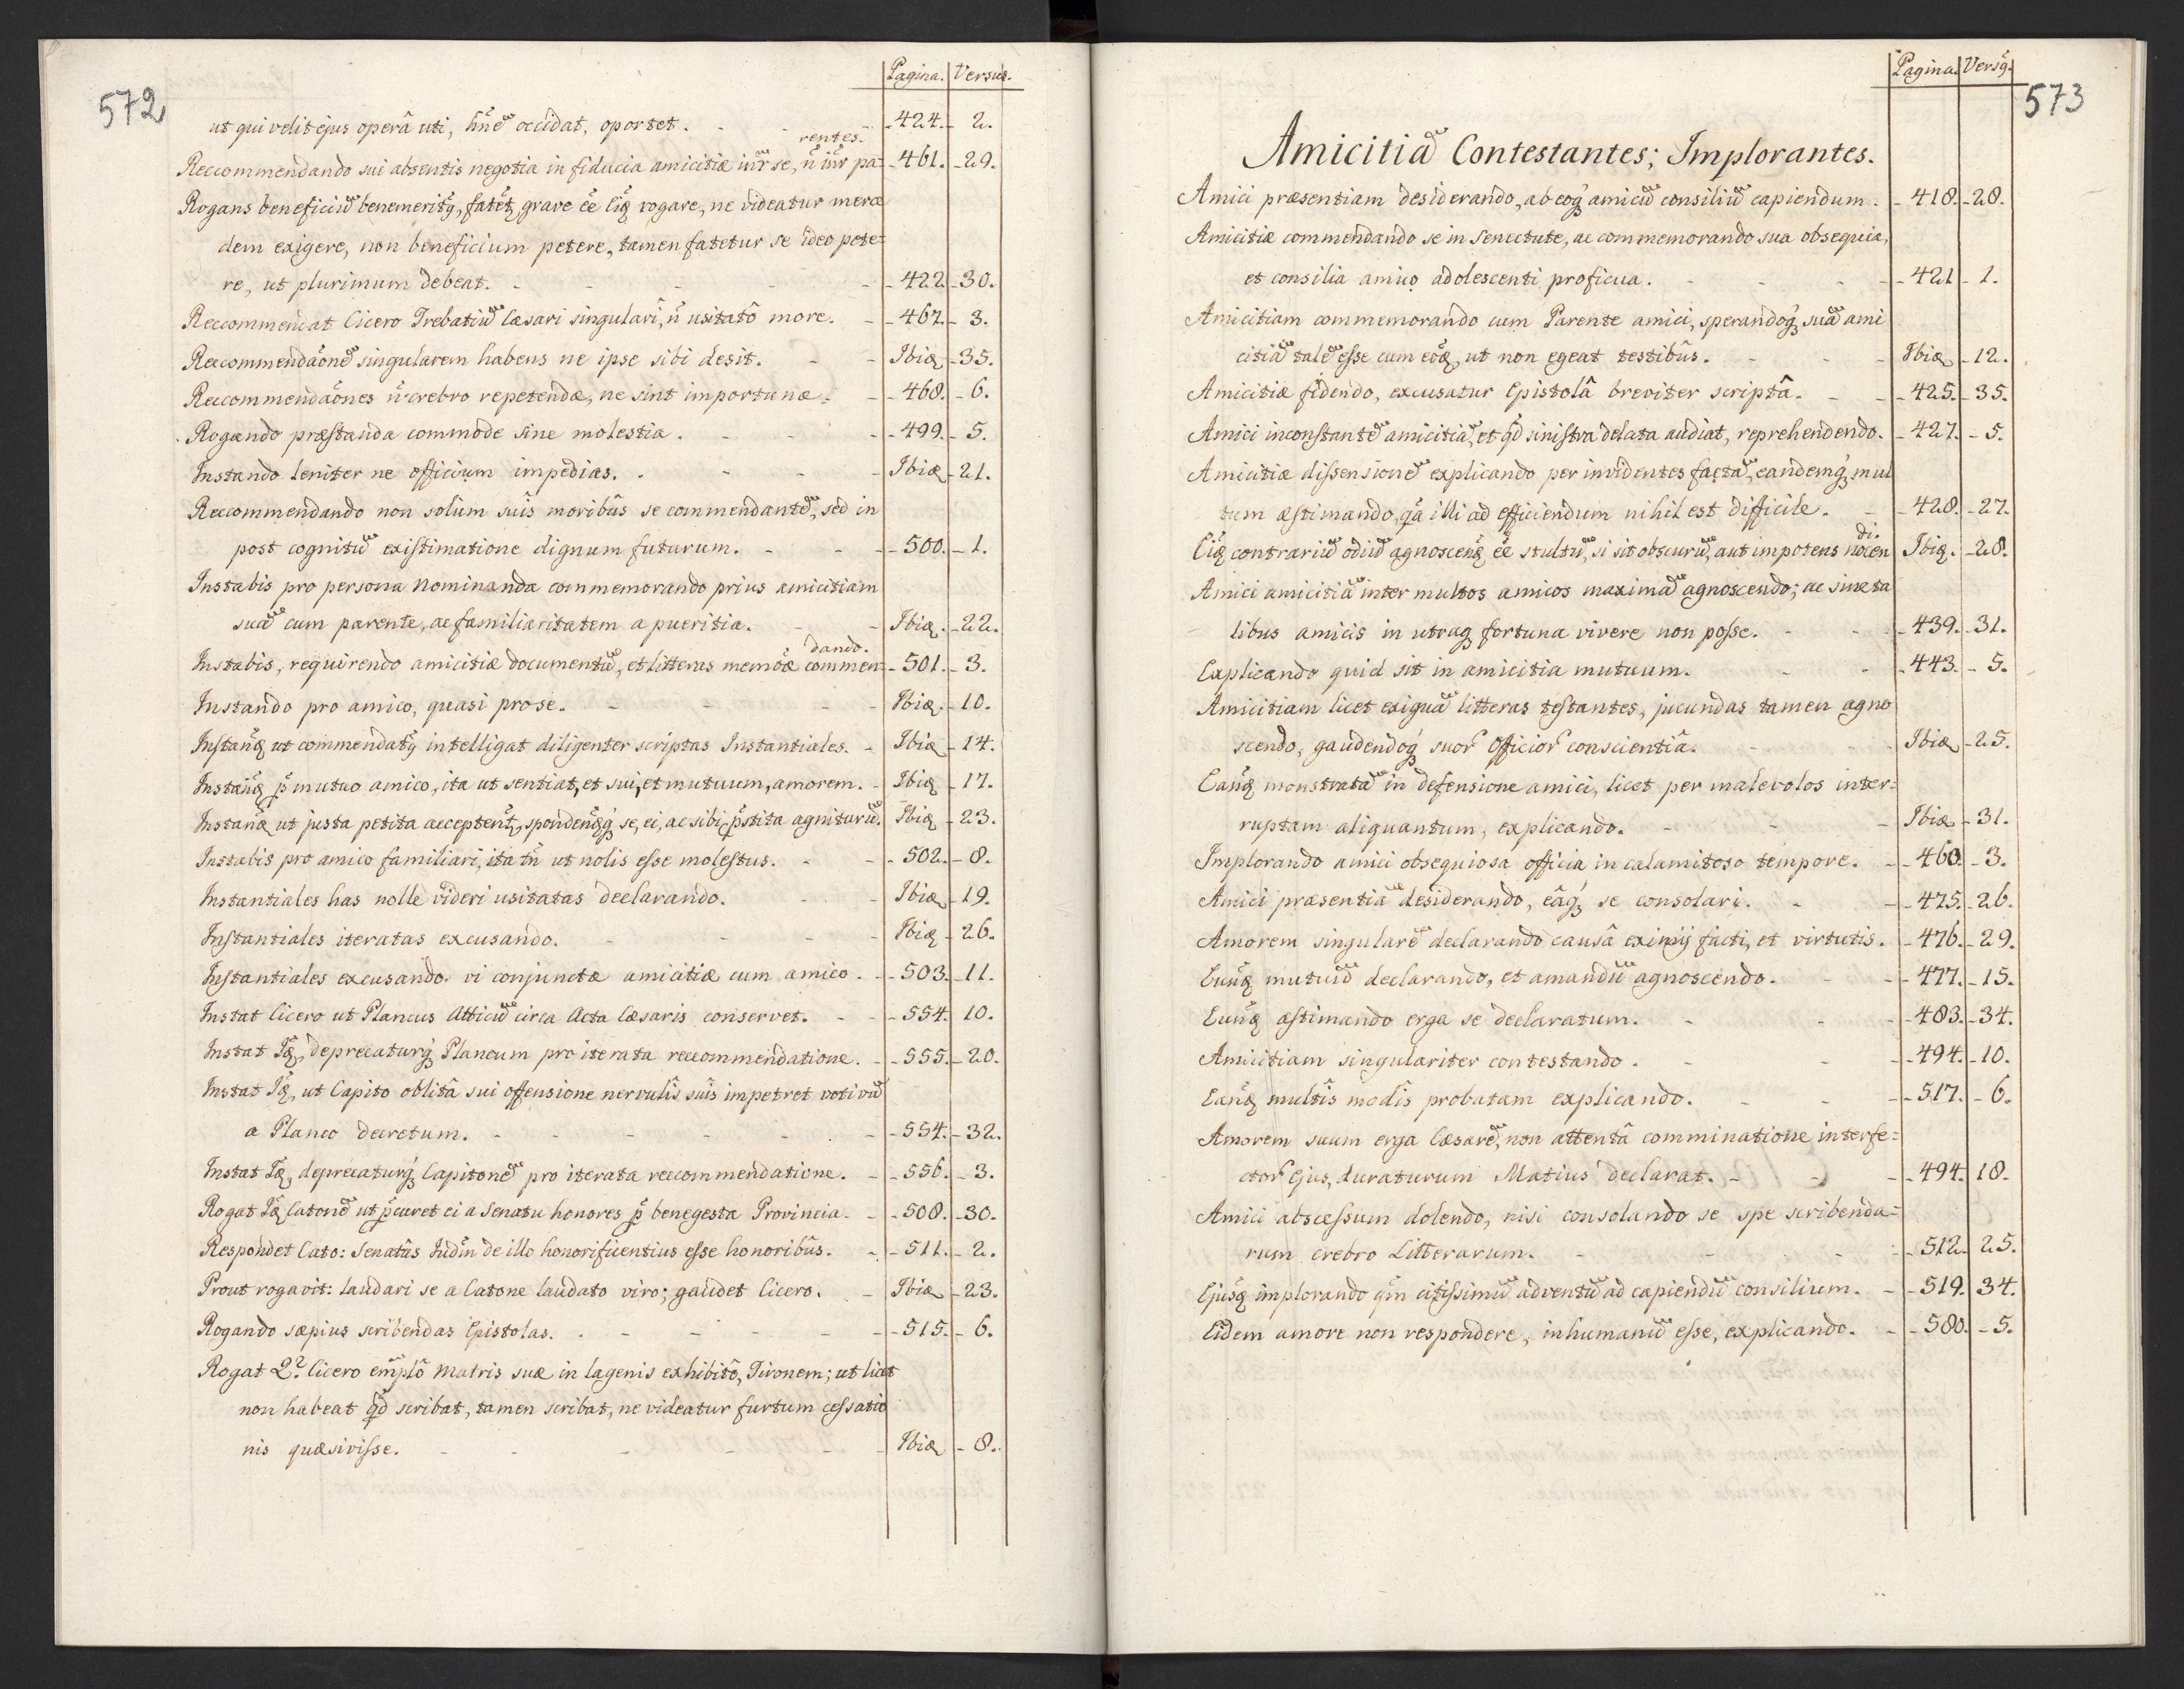 572
Pagina. Versus.
ut qui velit ejus operâ uti, hñe occidat, oportet. 424. 2.
rentes.
Reccommendando sui absentis negotia in fiducia amicitiæ iñr se, ñ iñr pa= 461. 29.
Rogans beneficiũ benemeritꝰ, fatet, grave ẽe Ciꝗ rogare, ne videatur merce
dem exigere, non beneficium petere, tamen fatetur se ideo pete=
re, ut plurimum debeat. 422 30.
Reccommendat Cicero Trebatiũ Cæsari singulari, ñ usitatô more. 467. 3.
Reccommendaõnẽ singularem habens ne ipse sibi desit. Ibiꝗ 35.
Reccommendaõnes ñ crebro repetendæ, ne sint importunæ. 468. 6.
Rogando præstanda commode sine molestia. 499. 5.
Instando leniter ne officium impedias. Ibiꝗ 21.
Reccommendando non solum suis moribûs se commendantẽ, sed in
post cognitũ existimatione dignum futurum. 500. 1.
Instabis pro persona Nominanda commemorando prius amicitiam
suã cum parente, ac familiaritatem a pueritia. Ibiꝗ. 22.
dando.
Instabis, requirendo amicitiæ documentũ, et litteras memõæ commen= 501. 3.
Instando pro amico, quasi pro se. Ibiꝗ. 10.
Instanꝗ ut commendatꝰ intelligat diligenter scriptas Instantiales. Ibiꝗ 14.
Instanꝗ p̃ mutuo amico, ita ut sentiat, et sui, et mutuum, amorem. Ibiꝗ 17.
Instanꝗ ut justa petita acceptent, spondenꝗꝫ se, ei, ac sibi p̃stita agniturũ. Ibiꝗ 23.
Instabis pro amico familiari, ita tñ ut nolis esse molestus. 502. 8.
Instantiales has nolle videri usitatas declarando. Ibiꝗ 19.
Instantiales iteratas excusando. Ibiꝗ 26.
Instantiales excusando vi conjunctæ amicitiæ cum amico. 503. 11.
Instat Cicero ut Plancus Atticũ circa Acta Cæsaris conservet. 554. 10.
Instat Iꝗ, deprecaturꝗꝫ Plancum pro iterata reccommendatione. 555. 20.
Instat Iꝗ, ut Capito oblitâ sui offensione nervulîs suîs impetret votivũ
a Planco decretum. 554. 32.
Instat Iꝗ, deprecaturꝗꝫ Capitonẽ pro iterata reccommendatione. 556. 3.
Rogat Iꝗ Catonẽ ut p̃curet ei a Senatu honores p̃ benegesta Provincia. 508. 30.
Respondet Cato: Senatûs Judiñ de illo honorificentius esse honoribûs. 511. 2.
Prout rogavit: laudari se a Catone laudato viro; gaudet Cicero. Ibiꝗ 23.
Rogando sæpius scribendas Epistolas. 515. 6.
Rogat Q? Cicero emplõ Matris suæ in lagenis exhibitô, Tironem; ut licet
non habeat qd scribat, tamen scribat, ne videatur furtum cessatio
nis quæsivisse. Ibiꝗ 8.
573
Pagina. Versꝰ.
Amicitiã Contestantes; Implorantes.
Amici præsentiam desiderando, ab eoꝗꝫ amicũ consiliũ capiendum. 418. 28.
Amicitiæ commendando se in Senectute, ac commemorando sua obsequia,
et consilia amico adolescenti proficua. 421 1.
Amicitiam commemorando cum Parente amici, sperandoꝗꝫ suã ami
citiã talẽ esse cum eoꝗ, ut non egeat testibûs. Ibiꝗ 12.
Amicitiæ fidendo, excusatur Epistolâ breviter scriptâ. 425. 35.
Amici inconstantẽ amicitiã, et qd sinistra delata audiat, reprehendendo. 427. 5.
Amicitiæ dissensionẽ explicando per invidentes factã, eandemꝗꝫ mul
tum æstimando, qa illi ad efficiendum nihil est difficile. 428. 27.
di.
Ciꝗ contrariũ odiũ agnoscenꝗ ẽe stultũ, si sit obscurũ, aut impotens nocen Ibiꝗ. 28.
Amici amicitiã inter multos amicos maximã agnoscendo; ac sine ta
libus amicis in utraꝗ fortuna vivere non posse. 439. 31.
Explicando quid sit in amicitia mutuum. 443. 5.
Amicitiam licet exiguã litteras testantes, jucundas tamen agno
scendo, gaudendoꝗꝫ suor officior conscientiâ. Ibiꝗ 25.
Eanꝗ monstratã in defensione amici, licet per malevolos inter=
ruptam aliquantum, explicando. Ibiꝗ 31.
Implorando amici obsequiosa officia in calamitoso tempore. 460. 3.
Amici præsentiã desiderando, eâꝗꝫ se consolari. 475. 26.
Amorem singularẽ declarando causâ eximij facti, et virtutis. 476. 29.
Eunꝗ mutuũ declarando, et amandũ agnoscendo. 477. 15.
Eunꝗ æstimando erga se declaratum. 483. 34.
Amicitiam singulariter contestando. 494. 10.
Eanꝗ multîs modîs probatam explicando. 517. 6.
Amorem suum erga Cæsarẽ, non attentâ comminatione interfe=
ctor Ejus, duraturum Matius declarat. 494. 18.
Amici abscessum dolendo, nisi consolando se spe scribenda=
rum crebro Litterarum. 512. 25.
Ejusꝗ implorando qm citissimũ adventũ ad capiendũ consilium. 519. 34.
Eidem amore non respondere, inhumanũ esse, explicando. 580. 5.